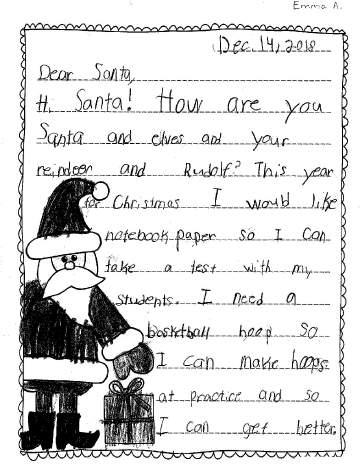 Emma A.
Dec. 14, 2018
Dear Santa,
Hi Santa! How are you
Santa and elves and your
reindeer and Rudolf? This year
for Christmas I would like
notebook paper so I can
take a test with my
students. I need a
basketball hoop so
I can make hoops
at practice and so
I can get better.